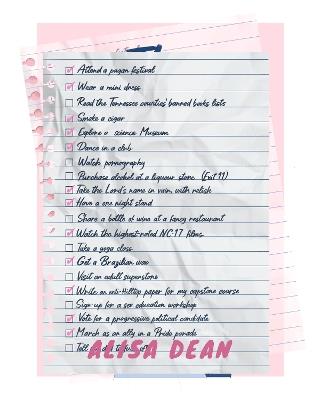 Attend a pagan festival
Wear a mini dress
Read the Tennessee counties banned books lists
Smoke a cigar
Explore a science Museum
Dance in a club
Watch pornography
Purchase alcohol at a liquour store (Exit 11)
Take the Lord's name in vain with relish
Have a one night stand
Share a bottle of wine at a fancy restaurant
Watch the highest-rated NC-17 films
Take a yoga class
Get a Brazilian wax
Visit an adult superstore
Write an anti-Hilltop paper for my capstone course
Sign-up for a sex education workshop
Vote for a progressive political candidate
March as an ally in a Pride parade
Tell
ALISA DEAN